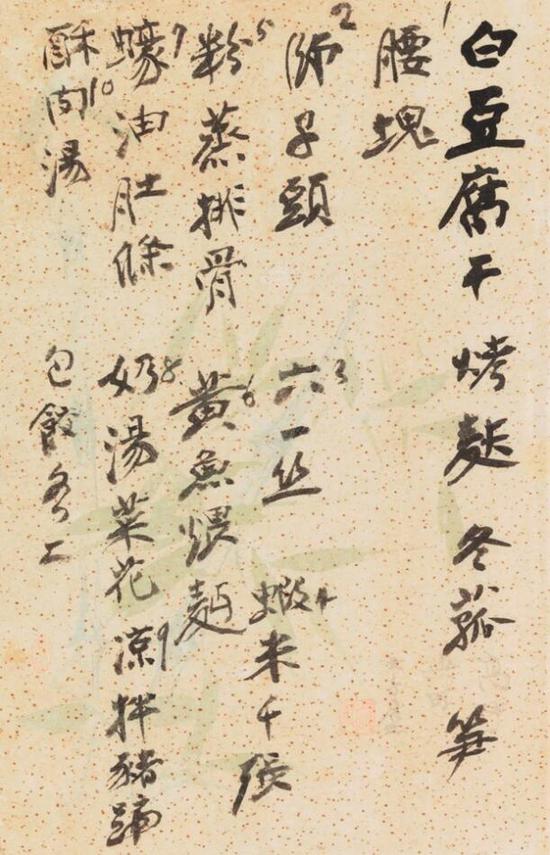 白豆腐干 烤麩 冬菰 笋
1腰塊
2师子頭 3六一丝 4蝦米千張
5粉蒸排骨 6黃魚煨麵
7蠔油肚條 8奶湯菜花 9涼拌豬蹄
10酥肉湯 包餃